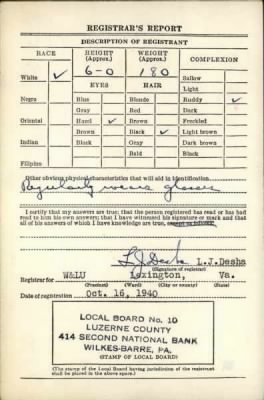 REGISTRAR'S REPORT
DESCRIPTION OF REGISTRANT
RACE HEIGHT (Approx.) WEIGHT (Approx.) COMPLEXION
White ✓ 6-0 180 Sallow
EYES HAIR Light
Negro Blue Blonde Ruddy ✓
Gray Red Dark
Oriental Hazel ✓ Brown Freckled
Brown Black ✓ Light brown
Indian Black Gray Dark brown
Bald Black
Filipino
Other obvious physical characteristics that will aid in identification
Regularly wears glasses
I certify that my answers are true; that the person registered has read or has had
read to him his own answers; that I have witnessed his signature or mark and that
all of his answers of which I have knowledge are true, except as follows:
L. J. Desha L.J.Desha
(Signature of registrar)
Registrar for W&LU Lexington, Va.
(Precinct) (Ward) (City or county) (State)
Date of registration Oct. 16, 1940
LOCAL BOARD No. 10
LUZERNE COUNTY
414 SECOND NATIONAL BANK
WILKES-BARRE, PA.
(STAMP OF LOCAL BOARD)
(The stamp of the Local Board having jurisdiction of the registrant
shall be placed in the above space.)